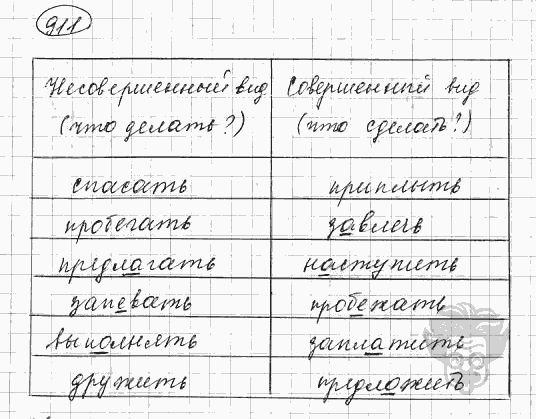 911
Несовершенный вид Совершенный вид
(что делать?) (что сделать?)
спасать приплыть
пробегать завлечь
предлагать наступить
запевать пробежать
выполнять заплатить
дружить предложить